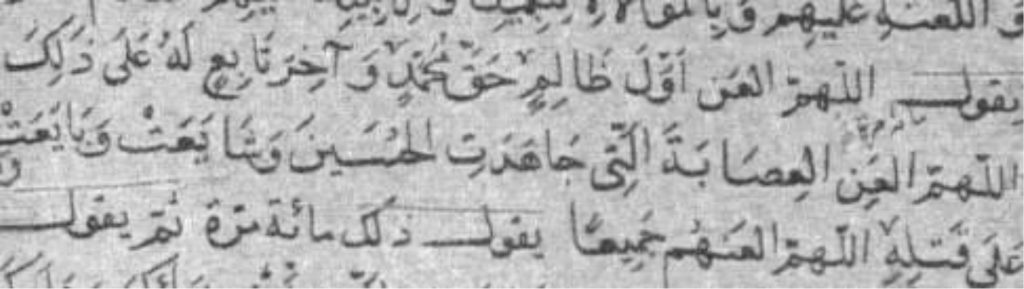 وَ اللَّعْنَةِ عَلَيْهِمْ وَبِالْمُوَالَاةِ
يقول اللّهمّ العَن اَوَّلَ ظَالِمٍ حَقَّ مُحَمَّدٍ وَ آخِرَ تَابِعٍ لَهُ عَلَى ذَلِكَ
اللّهمّ العَنِ العِصَابَةَ الَّتِي جَاهَدَتِ الحُسَينَ وَشَايَعَتْ وَبَايَعَتْ وَ
عَلَى قَتلِهِ اللّهمّ العَنهُم جَمِيعًا يقول ذلك مائة مرّة ثمّ يقول